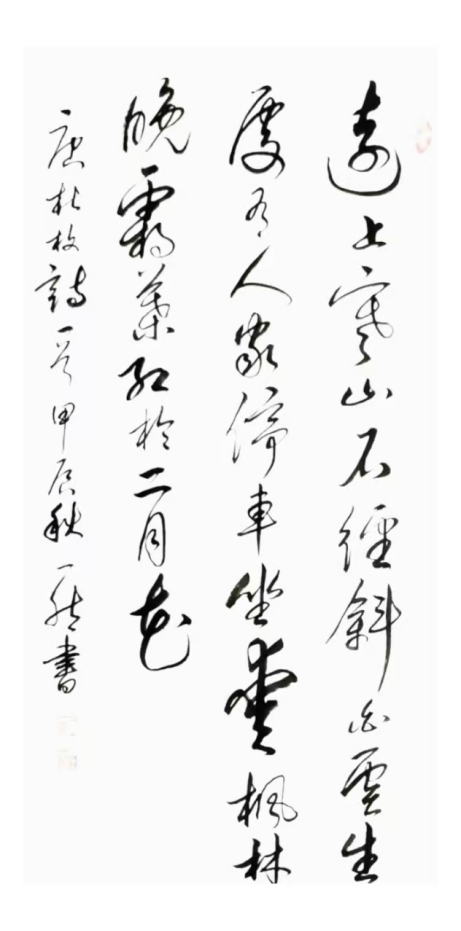 远上寒山石径斜白云生
處有人家停車坐愛楓林
晚霜葉红於二月花
唐杜牧詩一首甲辰秋一然書